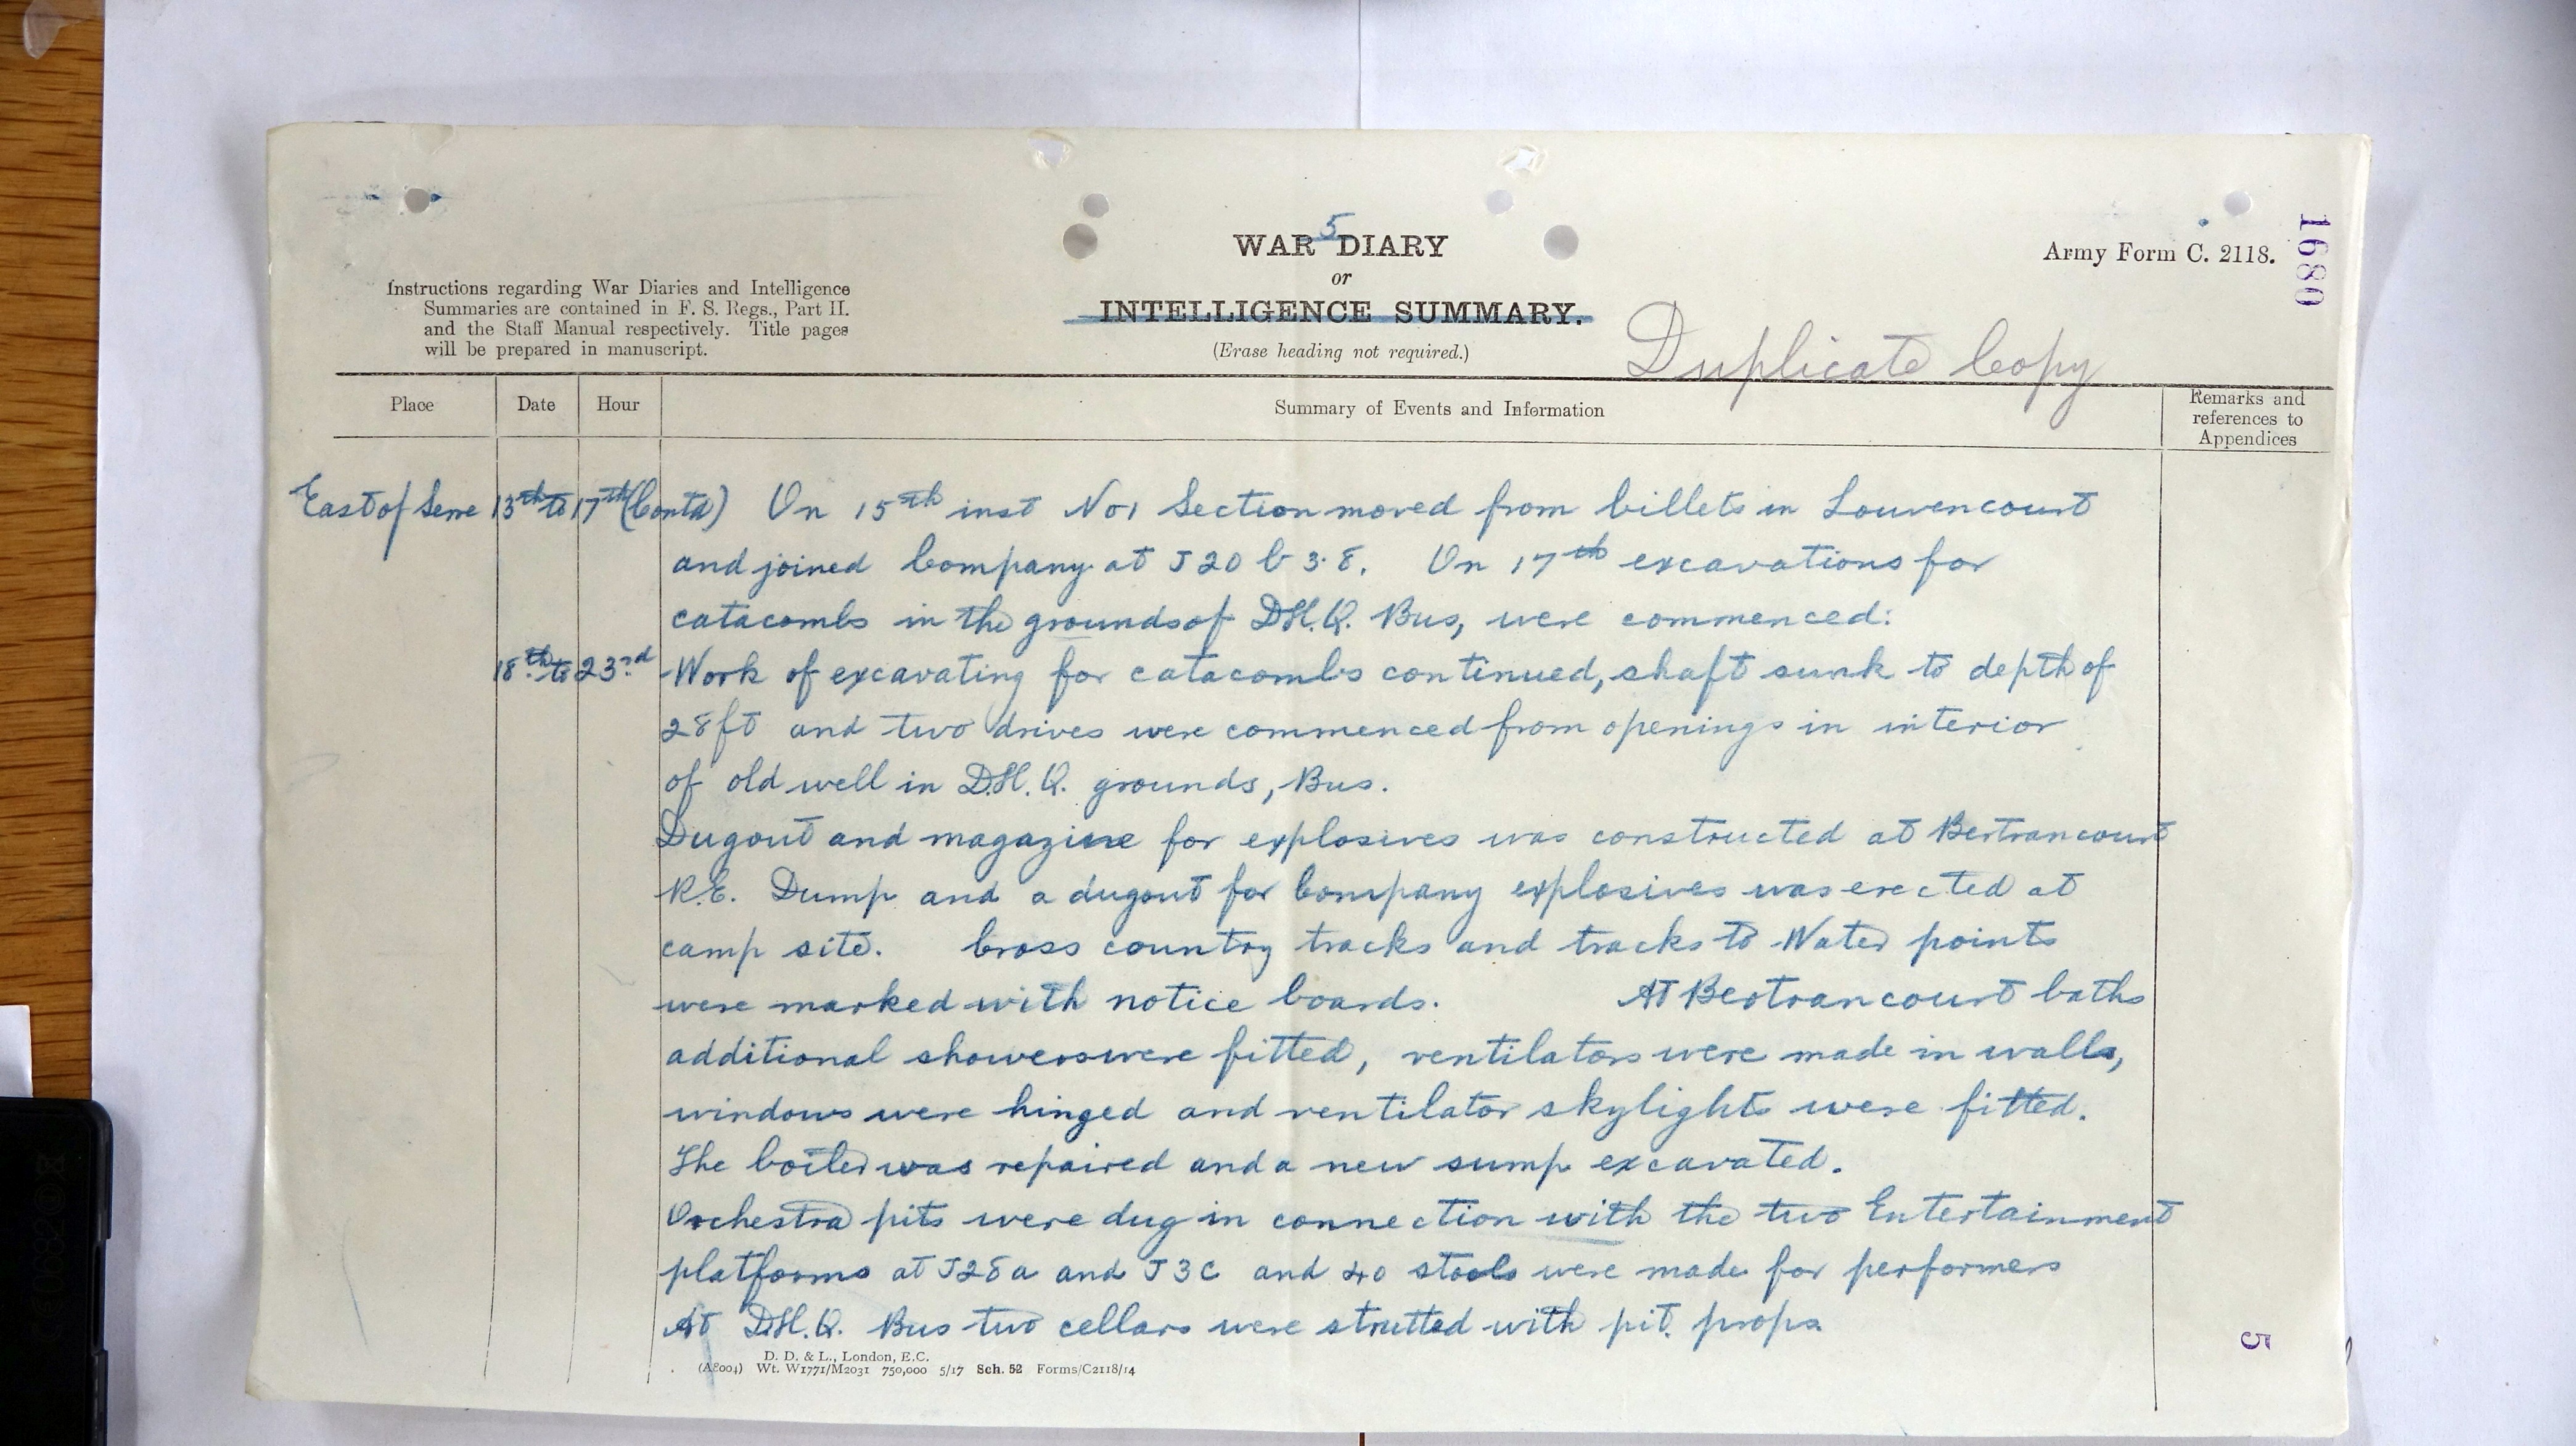 5
WAR DIARY
or
INTELLIGENCE SUMMARY.
(Erase heading not required.)
Army Form C. 2118.
1680
Instructions regarding War Diaries and Intelligence
Summaries are contained in F. S. Regs., Part II.
and the Staff Manual respectively. Title pages
will be prepared in manuscript.
Duplicate Copy
Place Date Hour Summary of Events and Information Remarks and
references to
Appendices
East of Serre 13th to 17th (Contd) On 15th inst No 1 Section moved from billets in Louvencourt
and joined Company at J 20 b 3.8. On 17th excavations for
catacombs in the grounds of D.H.Q. Bus, were commenced:
18th to 23rd Work of excavating for catacombs continued, shaft sunk to depth of
28ft and two drives were commenced from openings in interior
of old well in D.H.Q. grounds, Bus.
Dugout and magazine for explosives was constructed at Bertrancourt
R.E. Dump and a dugout for Company explosives was erected at
camp site. Cross country tracks and tracks to Water points
were marked with notice boards. At Bertrancourt baths
additional showers were fitted, ventilators were made in walls,
windows were hinged and ventilator skylights were fitted.
The boiler was repaired and a new sump excavated.
Orchestra pits were dug in connection with the two Entertainment
platforms at J28a and J3C and 40 stools were made for performers
At D.H.Q. Bus two cellars were strutted with pit props
D. D. & L., London, E.C.
(A8004) Wt. W1771/M2031 750,000 5/17 Sch. 52 Forms/C2118/14
5